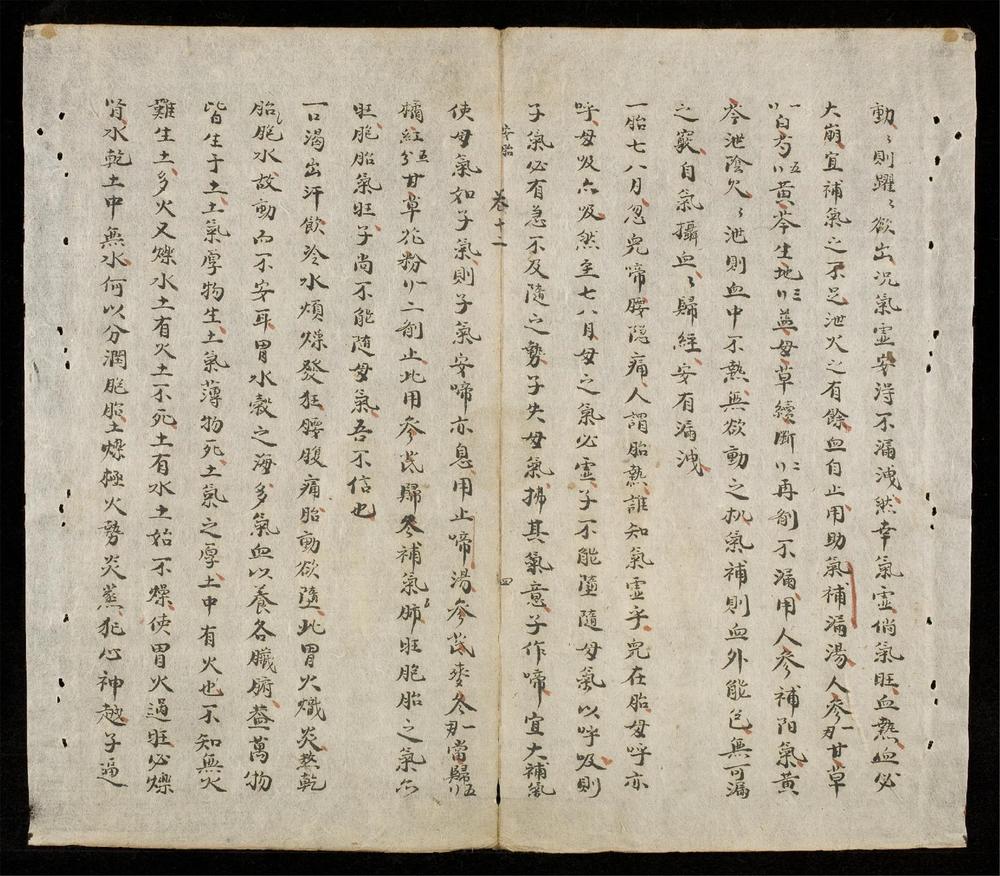 動〻則躍〻欲出况氣虛安得不漏洩然幸氣虛倘氣旺血熱血必
大崩宜補氣之不足泄火之有餘血自止用助氣補漏湯人參一刄甘草
一〢白芍五〢黃芩生地三〢益母草續斷二〢再剤不漏用人參補阳氣黃
芩泄陰欠〻泄則血中不熱無欲動之机氣補則血外能包無可漏
之竅自氣攝血〻歸經安有漏洩
一胎七八月忽兒啼腰隠痛人謂胎熱誰知氣虛乎兒在胎母呼亦
呼母吸亦吸然至七八月母之氣必虛子不能隨隨母氣以呼吸則
子氣必有急不及隨之勢子失母氣拂其氣意子作啼宜大補氣
安胎
卷十二
四
使母氣如子氣則子氣安啼亦息用止啼湯參芪麥冬一刄當歸五〢
橘紅五分甘草花粉〢二剤止此用參芪歸冬補氣肺旺胞胎之氣亦
旺胞胎氣旺子尚不能隨母氣吾不信也
一口渴出汗飲冷水煩燥發狂腰腹痛胎動欲墮此胃火熾炎熬乾
胎胞水故動而不安耳胃水穀之海多氣血以養各臟腑蓋萬物
皆生于土土氣厚物生土氣薄物死土氣之厚土中有火也不知無火
難生土多火又爍水土有火土不死土有水土始不燥使胃火過旺必爍
肾水乾土中無水何以分潤胞胎土燥極火勢炎蒸犯心神越子逼